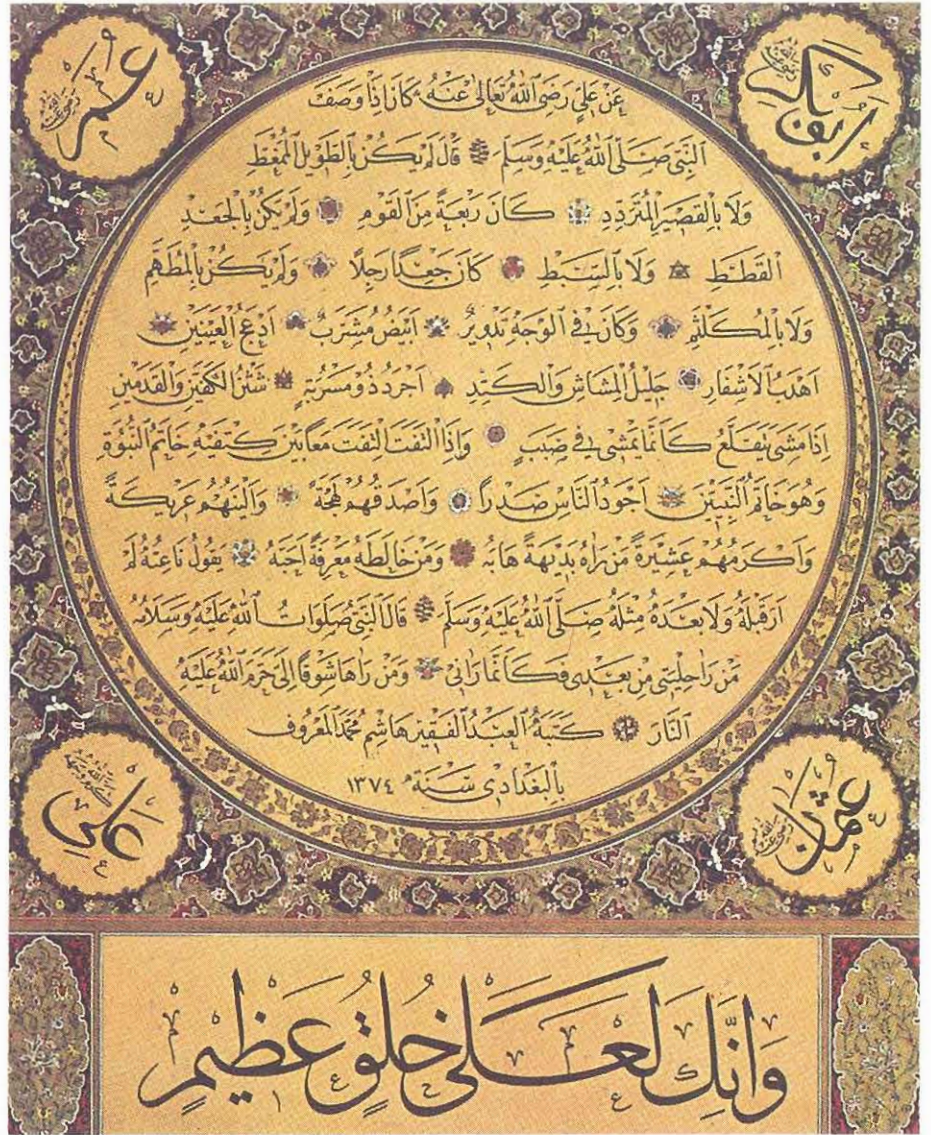 ابوبكر رضي الله عنه
عمر رضي الله عنه
عَنْ عَلِيٍّ رَضِيَ اللهُ تَعَالَى عَنْهُ كَانَ إِذَا وَصَفَ
النَّبِيَّ صَلَّى اللهُ عَلَيْهِ وَسَلَّمَ قَالَ لَمْ يَكُنْ بِالطَّوِيلِ الْمُمَّغِطِ
وَلَا بِالْقَصِيرِ الْمُتَرَدِّدِ كَانَ رَبْعَةً مِنَ الْقَوْمِ وَلَمْ يَكُنْ بِالْجَعْدِ
الْقَطَطِ وَلَا بِالسَّبْطِ كَانَ جَعْدًا رَجِلًا وَلَمْ يَكُنْ بِالْمُطَهَّمِ
وَلَا بِالْمُكَلْثَمِ وَكَانَ فِي الْوَجْهِ تَدْوِيرٌ اَبْيَضُ مُشْرَبٌ اَدْعَجُ الْعَيْنَيْنِ
اَهْدَبُ الْاَشْفَارِ جَلِيلُ الْمُشَاشِ وَالْكَتَدِ اَجْرَدُ ذُو مَسْرُبَةٍ شَثْنُ الْكَفَّيْنِ وَالْقَدَمَيْنِ
اِذَا مَشَى يَتَقَلَّعُ كَاَنَّمَا يَمْشِي فِي صَبَبٍ وَاِذَا الْتَفَتَ الْتَفَتَ مَعًا بَيْنَ كَتِفَيْهِ خَاتَمُ النُّبُوَّةِ
وَهُوَ خَاتَمُ النَّبِيِّينَ اَجْوَدُ النَّاسِ صَدْرًا وَاَصْدَقُهُمْ لَهْجَةً وَاَلْيَنُهُمْ عَرِيكَةً
وَاَكْرَمُهُمْ عَشِيرَةً مَنْ رَاٰهُ بَدِيهَةً هَابَهُ وَمَنْ خَالَطَهُ مَعْرِفَةً اَحَبَّهُ يَقُولُ نَاعِتُهُ لَمْ
اَرَ قَبْلَهُ وَلَا بَعْدَهُ مِثْلَهُ صَلَّى اللهُ عَلَيْهِ وَسَلَّمَ قَالَ النَّبِيُّ صَلَوَاتُ اللهِ عَلَيْهِ وَسَلَامُهُ
مَنْ رَاَ حِلْيَتِي مِنْ بَعْدِي فَكَاَنَّمَا رَاٰنِي وَمَنْ رَاٰهَا شَوْقًا اِلَيَّ حَرَّمَ اللهُ عَلَيْهِ
النَّارَ كَتَبَهُ الْعَبْدُ الْفَقِيرُ هَاشِمُ مُحَمَّد الْمَعْرُوف
بِالْبَغْدَادِي سَنَةَ ١٣٧٤
عثمان رضي الله عنه
علي كرم الله وجهه
وَاِنَّكَ لَعَلَى خُلُقٍ عَظِيمٍ